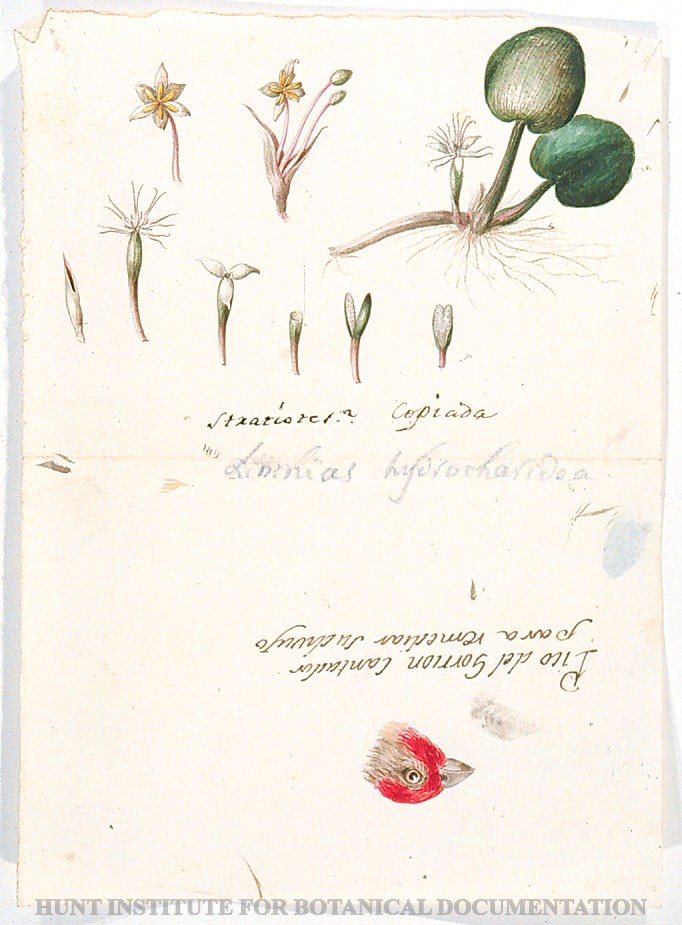 Stratiotes. n. Copiada
Limnias hydrocharidea
Pico del Gorrion Cantador
para remediar Sudivujo
HUNT INSTITUTE FOR BOTANICAL DOCUMENTATION